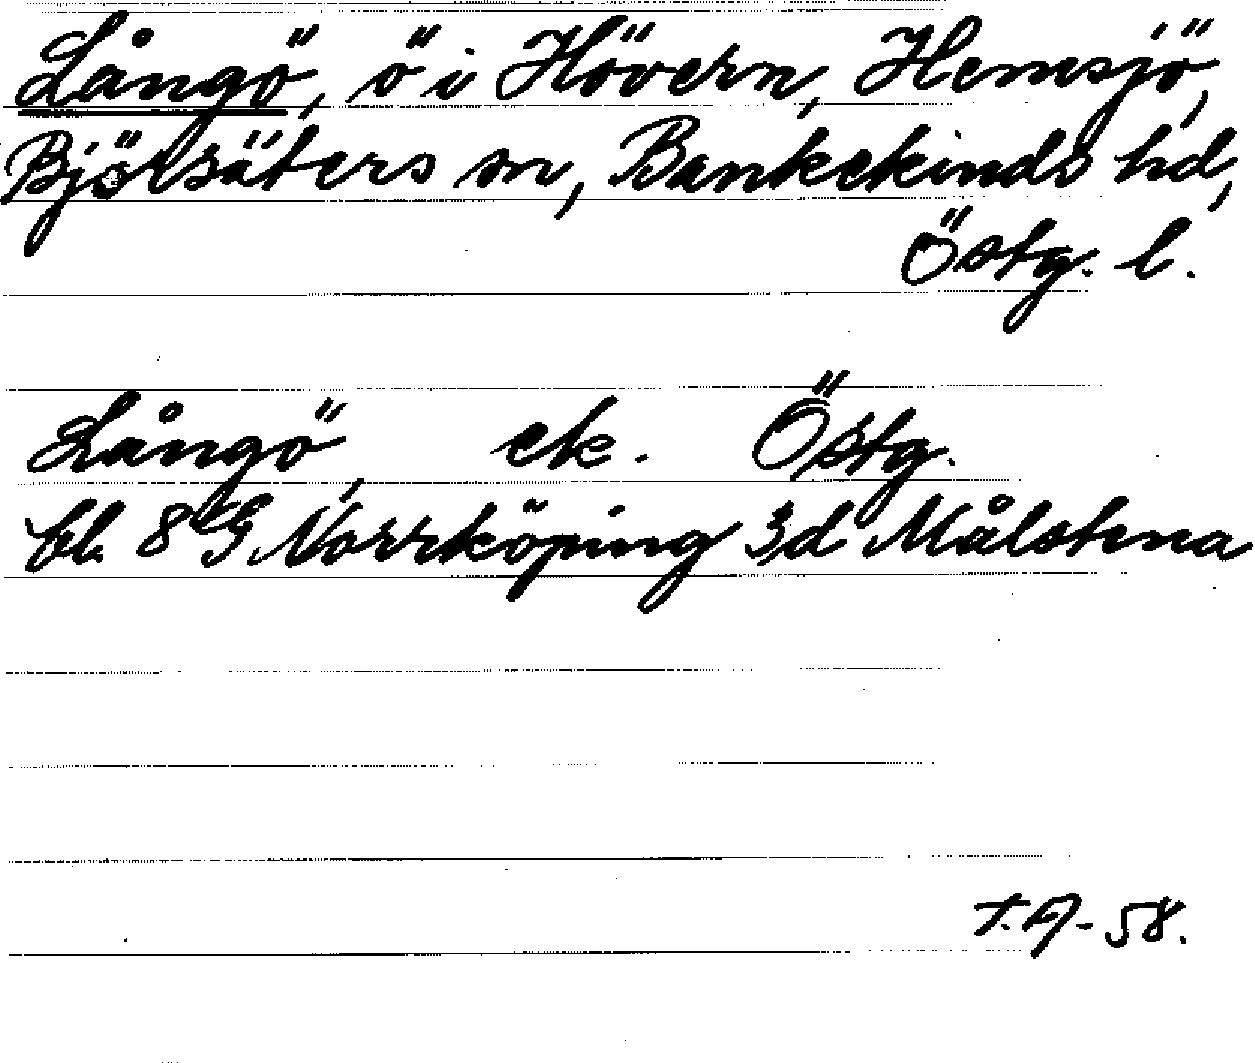 Långö, ö i Hövern, Hemsjö,
Björsäters sn, Bankekinds hd,
Östg. l.
Långö, ek. Östg.
bl. 8 G Norrköping 3d Målstena
T.A-58.